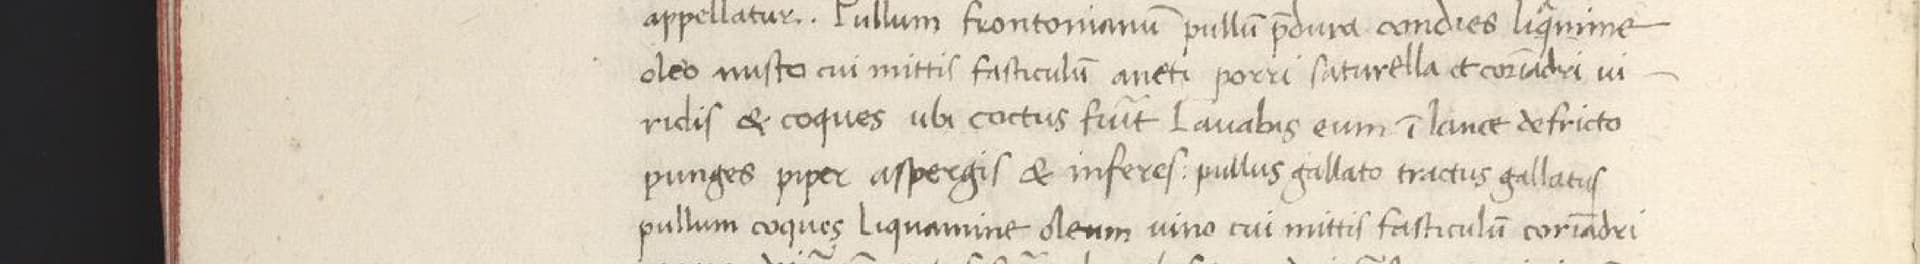 appellatur. Pullum frontonianū pullū p̄dura condies liq̄mine
oleo misto cui mittis fasticulū aneti porri saturella et coriādri ui
ridis & coques ubi coctus fuīt Lauabis eum ī lance defricto
punges piper aspergis & inferes: pullus gallato tractus gallatus
pullum coques Liquamine oleum uino cui mittis fasticulū coriādri